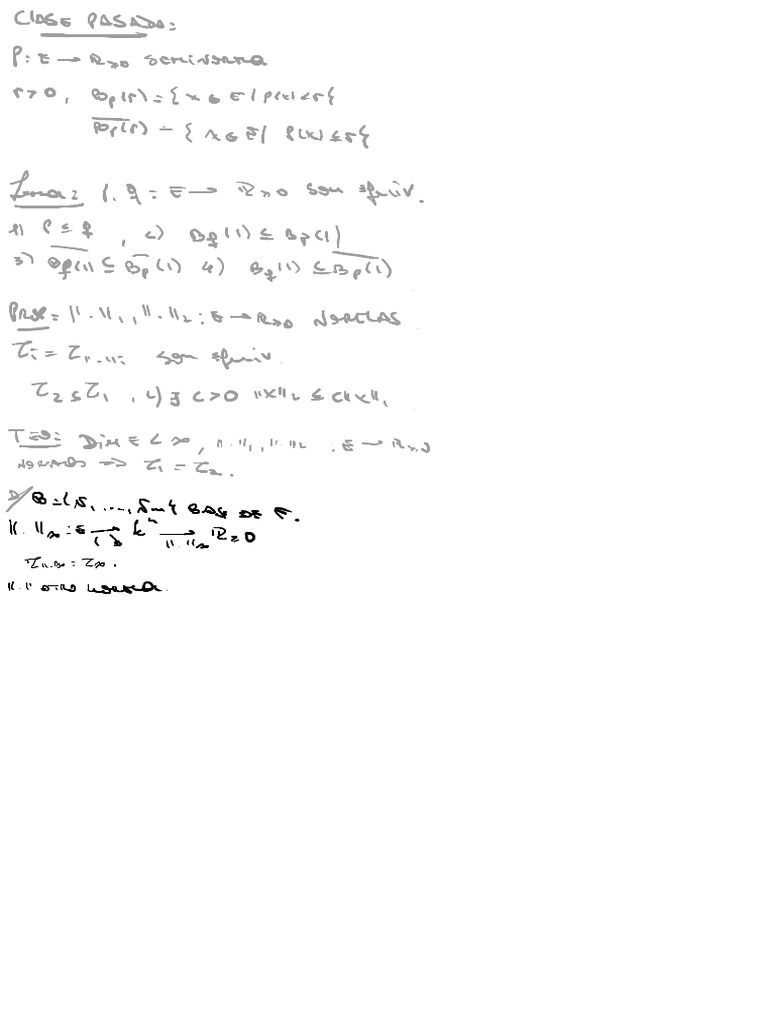 CLASE PASADA:
p: E → ℝ≥0 SEMINORMA
r>0, Bp(r) = { x ∈ E / p(x) < r }
Bp(r) = { x ∈ E / p(x) ≤ r }
Lema: p, q : E → ℝ≥0 son equiv.
1) p ≤ q, 2) Bq(1) ⊆ Bp(1)
3) Bq(1) ⊆ Bp(1) 4) Bq(1) ⊆ Bp(1)
PROP: ||·||1, ||·||2 : E → ℝ≥0 NORMAS
τi = τ||·||i son equiv.
τ2 ⊆ τ1, 2) ∃ c>0 ||x||2 ≤ c||x||1
TEO: DIM E < ∞, ||·||1, ||·||2 : E → ℝ≥0
NORMAS ⇒ τ1 = τ2.
D/ B = {v1, ..., vn} BASE DE E.
||·||∞ : E → kⁿ → ℝ≥0
||·||∞
τ||·||∞ = τ∞.
||·|| OTRA NORMA.